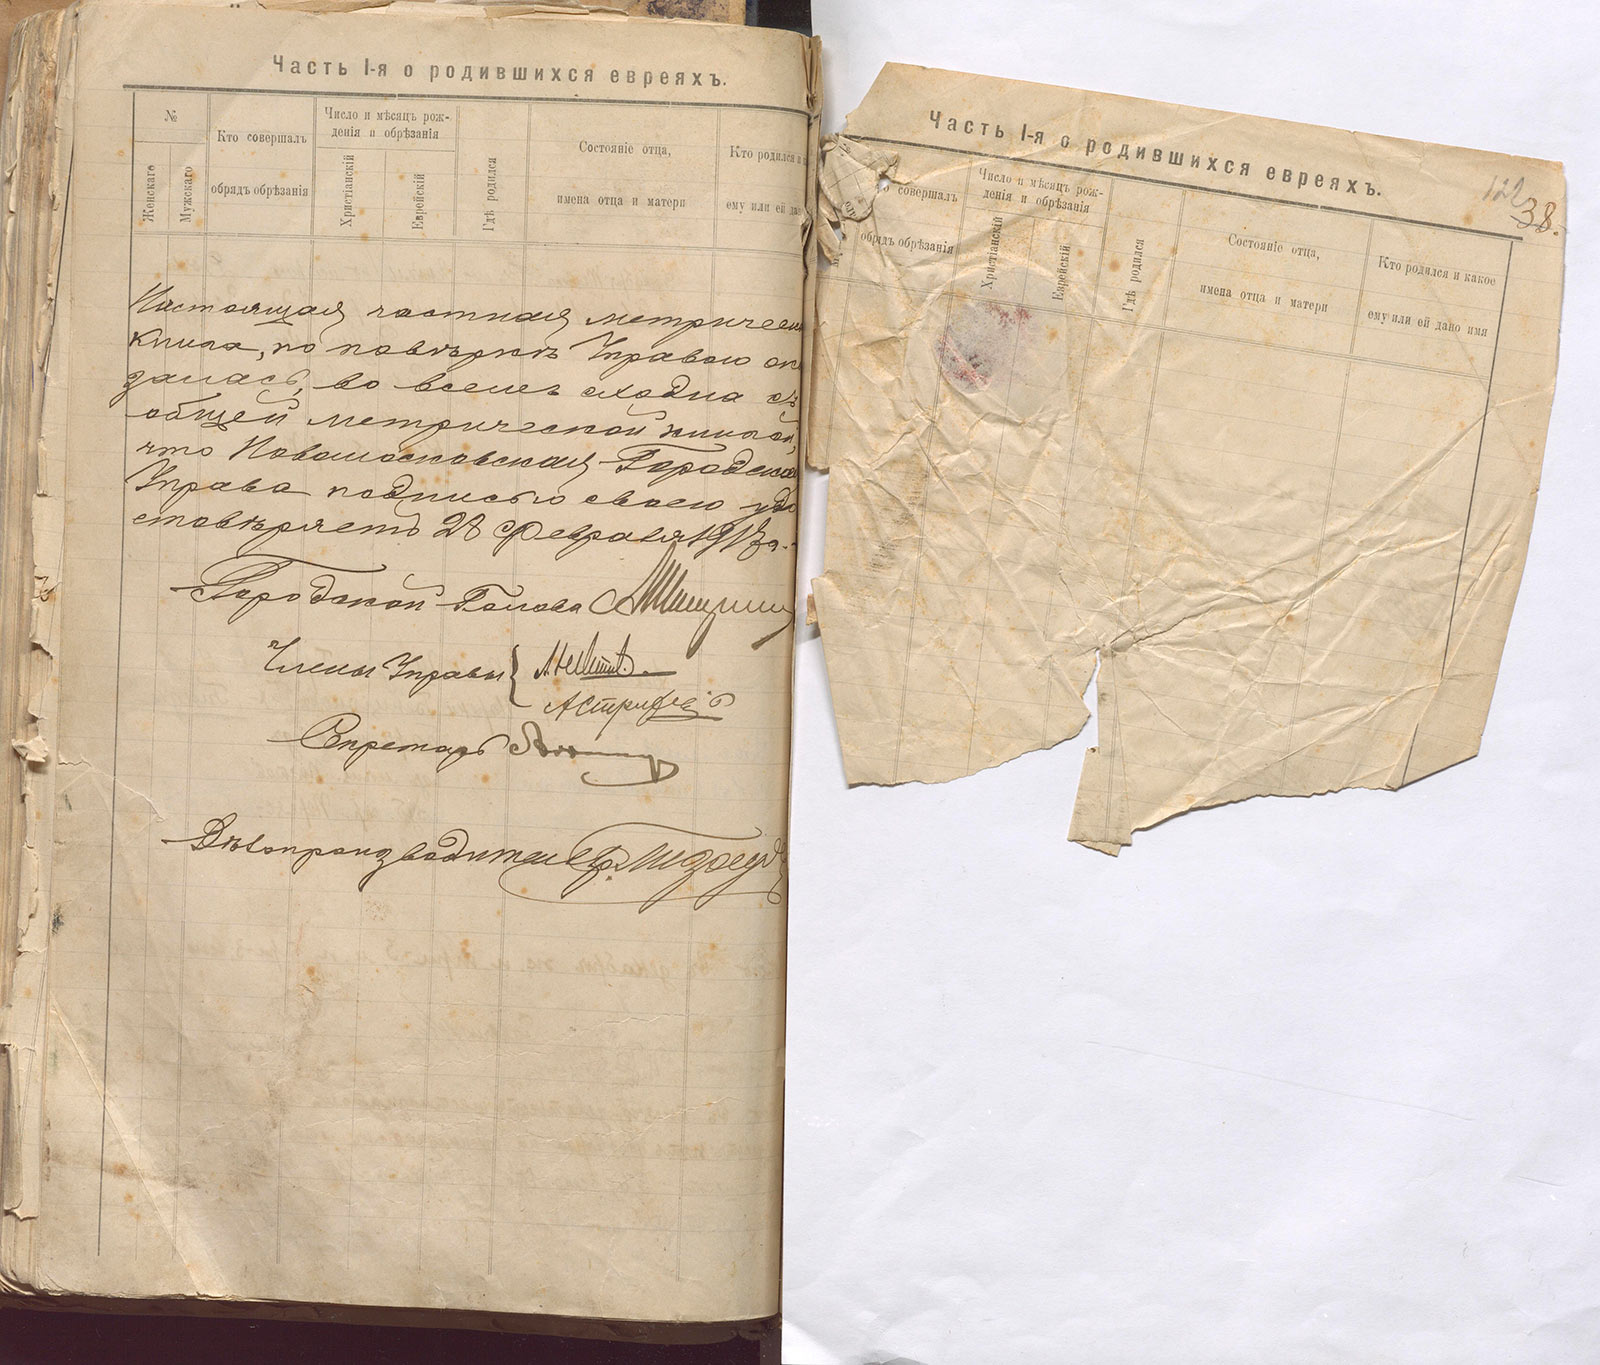 Часть I-я о родившихся евреяхъ.
№
Женскаго
Мужскаго
Кто совершалъ
обрядъ обрѣзанія
Число и мѣсяцъ рож-
денія и обрѣзанія
Христіанскій
Еврейскій
Гдѣ родился
Состояніе отца,
имена отца и матери
Кто родился и
ему или ей дано
Настоящая частная метрическая
книга, по повѣркѣ Управою ока
залась, во всемъ сходна съ
общей метрической книгой,
что Новомосковская Городская
Управа подписью своею удо
стовѣряетъ 28 Февраля 1913 г.
Городской Голова
Члены Управы
Секретарь
Дѣлопроизводитель
Часть I-я о родившихся евреяхъ.
122
38.
совершалъ
обрядъ обрѣзанія
Число и мѣсяцъ рож-
денія и обрѣзанія
Христіанскій
Еврейскій
Гдѣ родился
Состояніе отца,
имена отца и матери
Кто родился и какое
ему или ей дано имя